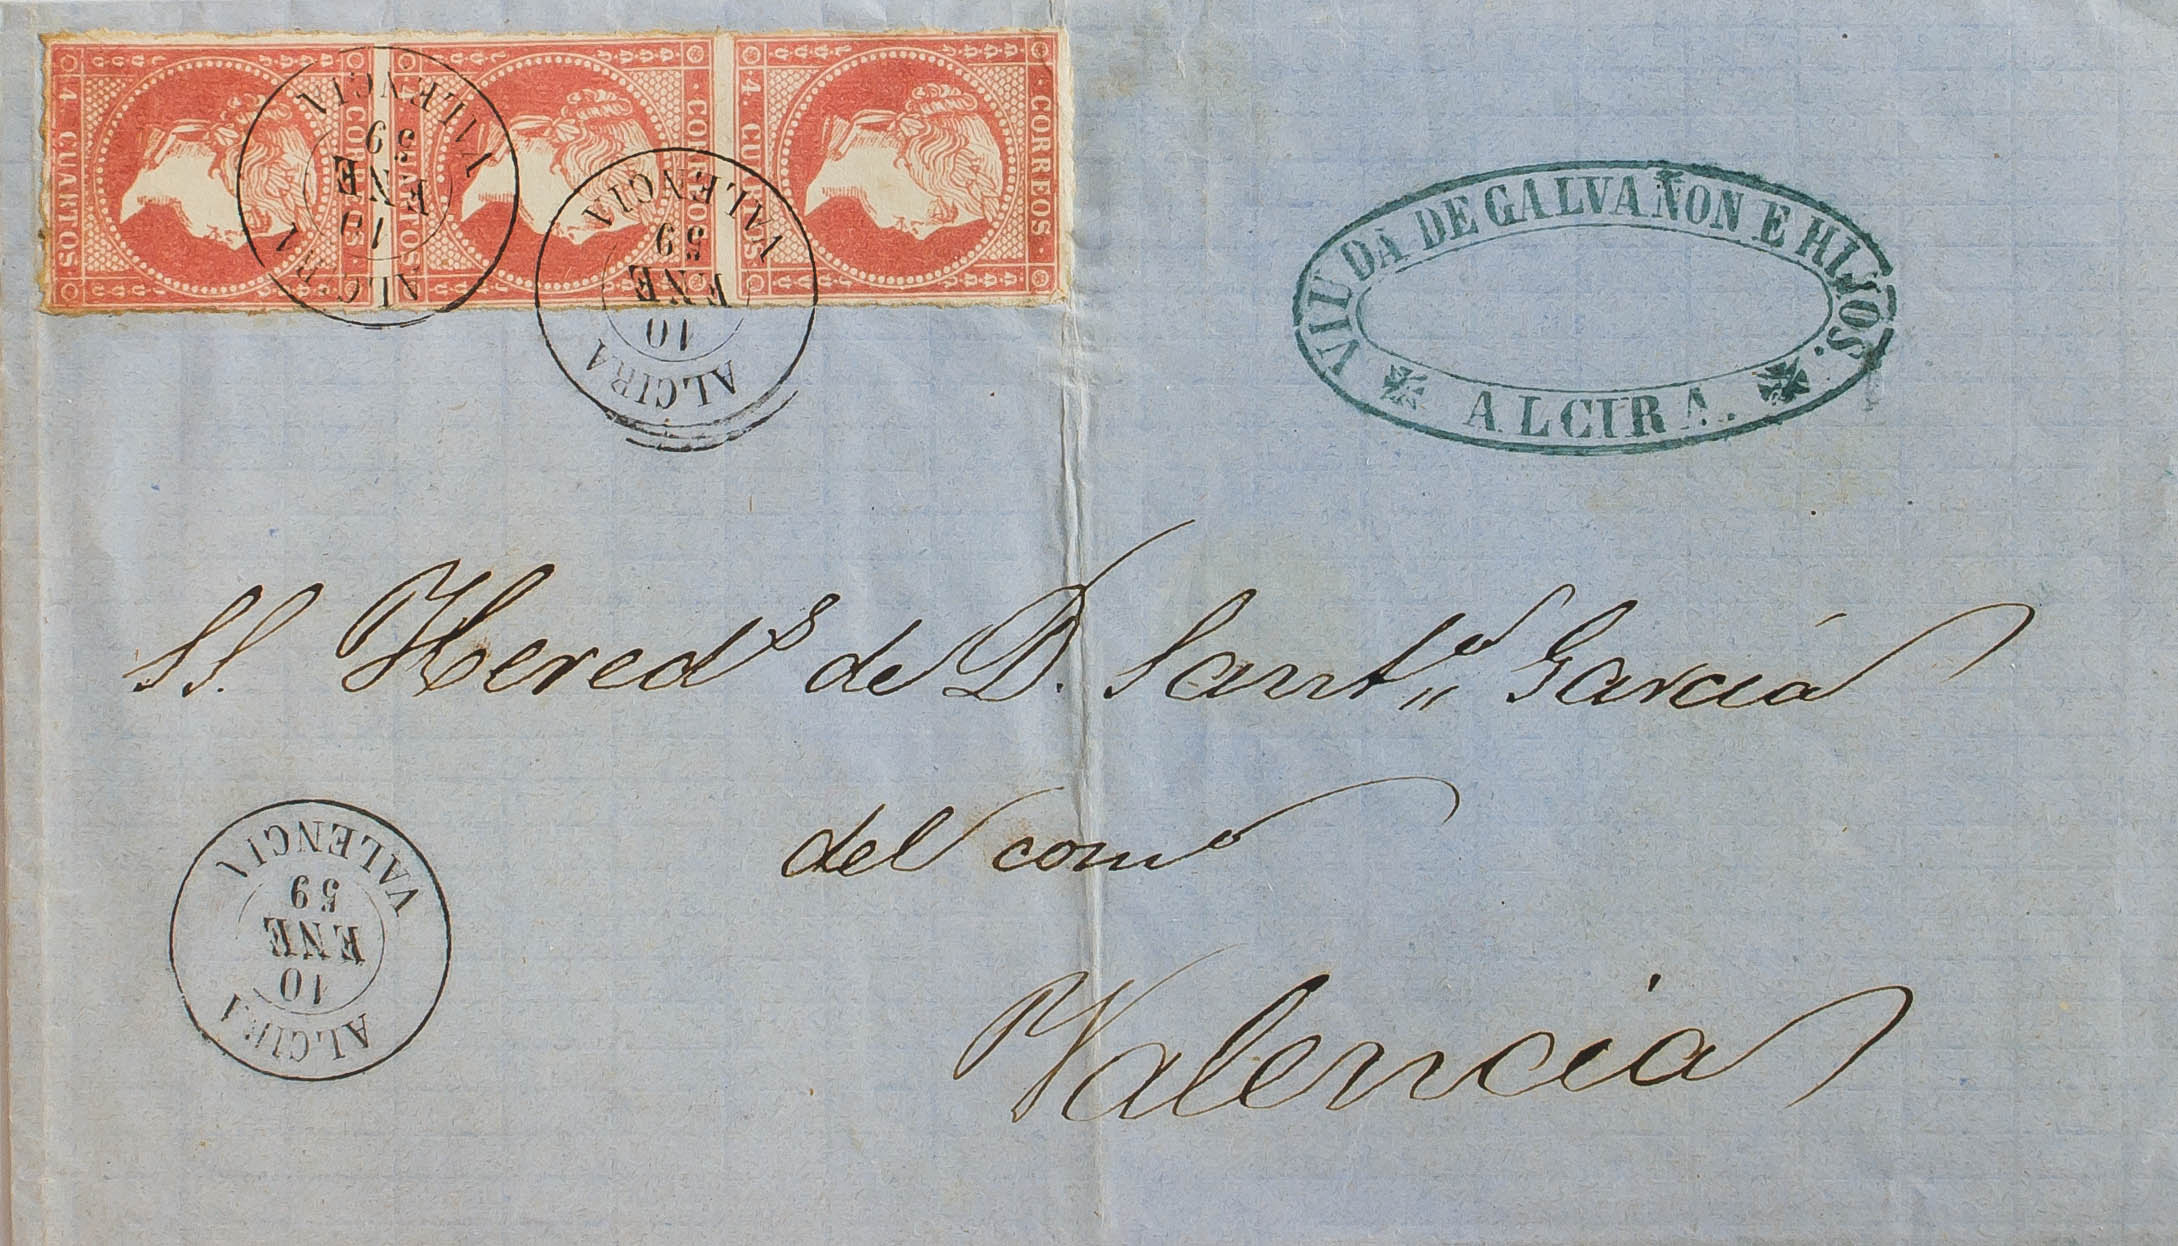 4 CUARTOS
CORREOS
4 CUARTOS
CORREOS
4. CUARTOS
CORREOS
ALCIRA
10
ENE
59
VALENCIA
ALCIRA
10
ENE
59
VALENCIA
VIUDA DE GALVAÑON E HIJOS.
ALCIRA.
SS. Hereds de D. Santo Garcia
del como
Valencia
ALCIRA
10
ENE
59
VALENCIA